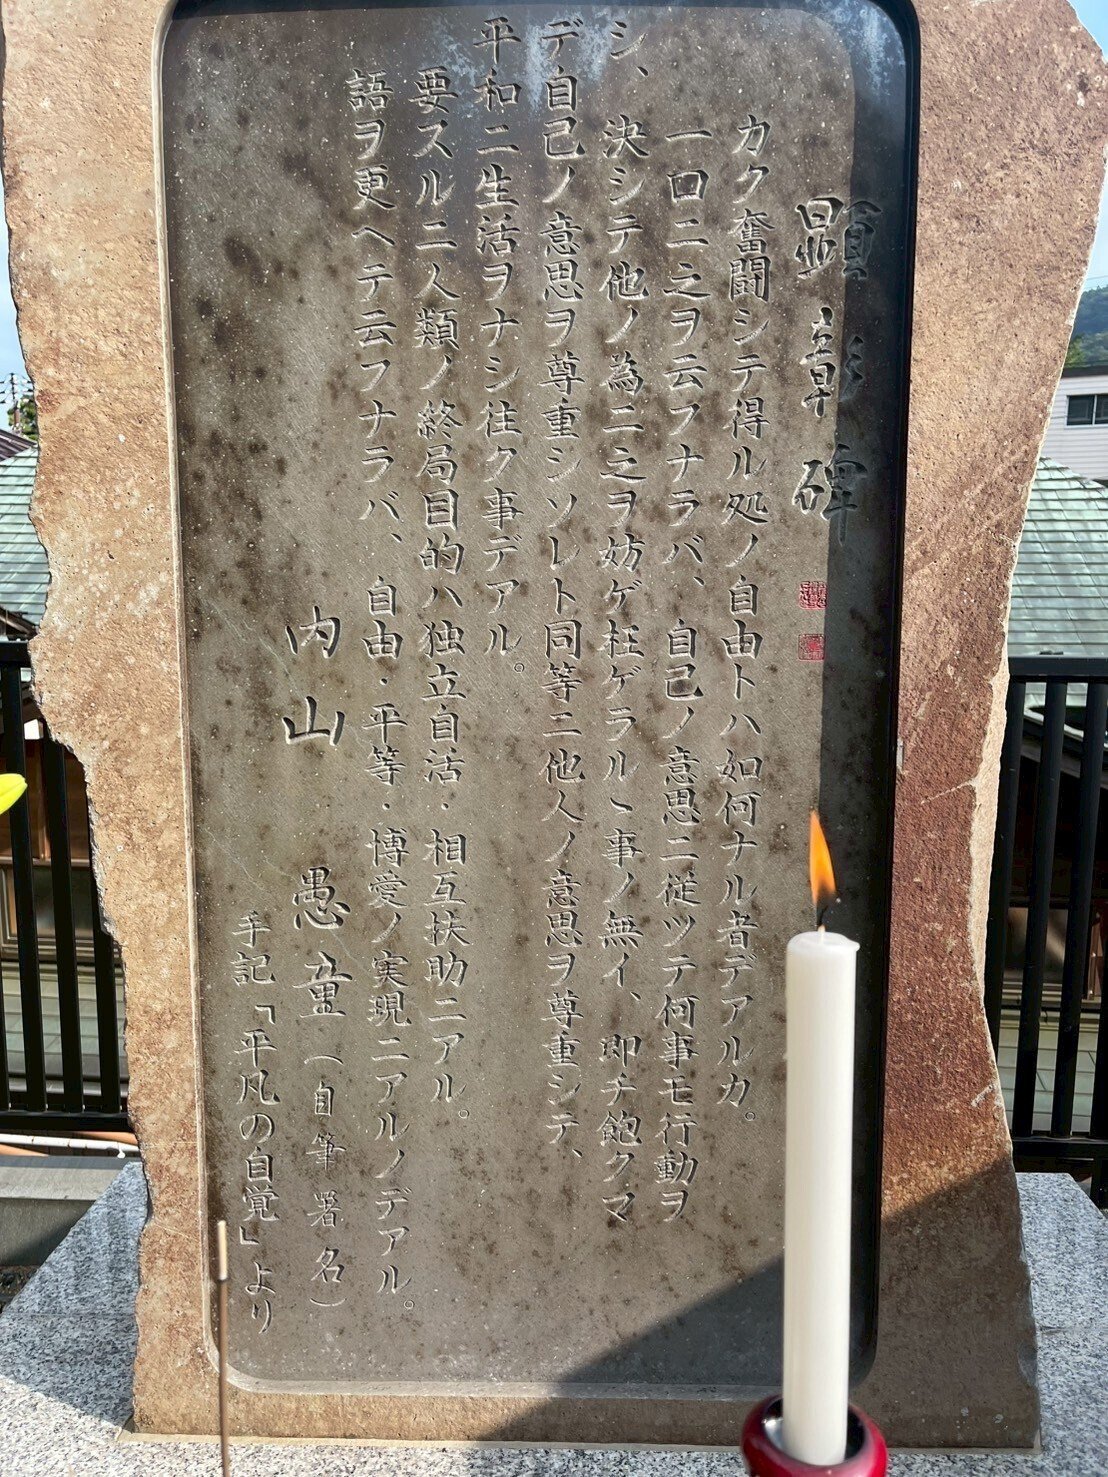 顕彰碑
カク奮闘シテ得ル処ノ自由トハ如何ナル者デアルカ。
一口ニ之ヲ云フナラバ、自己ノ意思ニ従ツテ何事モ行動ヲ
シ、決シテ他ノ為ニ之ヲ妨ゲ枉ゲラルヽ事ノ無イ、即チ飽クマ
デ自己ノ意思ヲ尊重シソレト同等ニ他人ノ意思ヲ尊重シテ、
平和ニ生活ヲナシ往ク事デアル。
要スルニ人類ノ終局目的ハ独立自活・相互扶助ニアル。
語ヲ更ヘテ云フナラバ、自由・平等・博愛ノ実現ニアルノデアル。
内山愚童（自筆署名）
手記「平凡の自覚」より